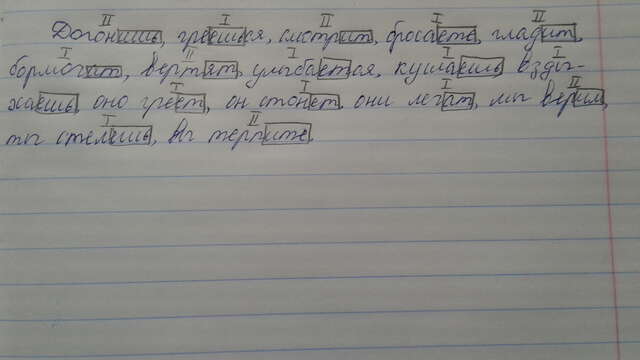 Догонишь, греешься, смотрит, бросаеть, гладит,
бормочит, вертят, улыбается, кушаешь взды-
хаешь, оно греет, он стонет, они лечат, мы верим,
ты стелешь, вы терпите.